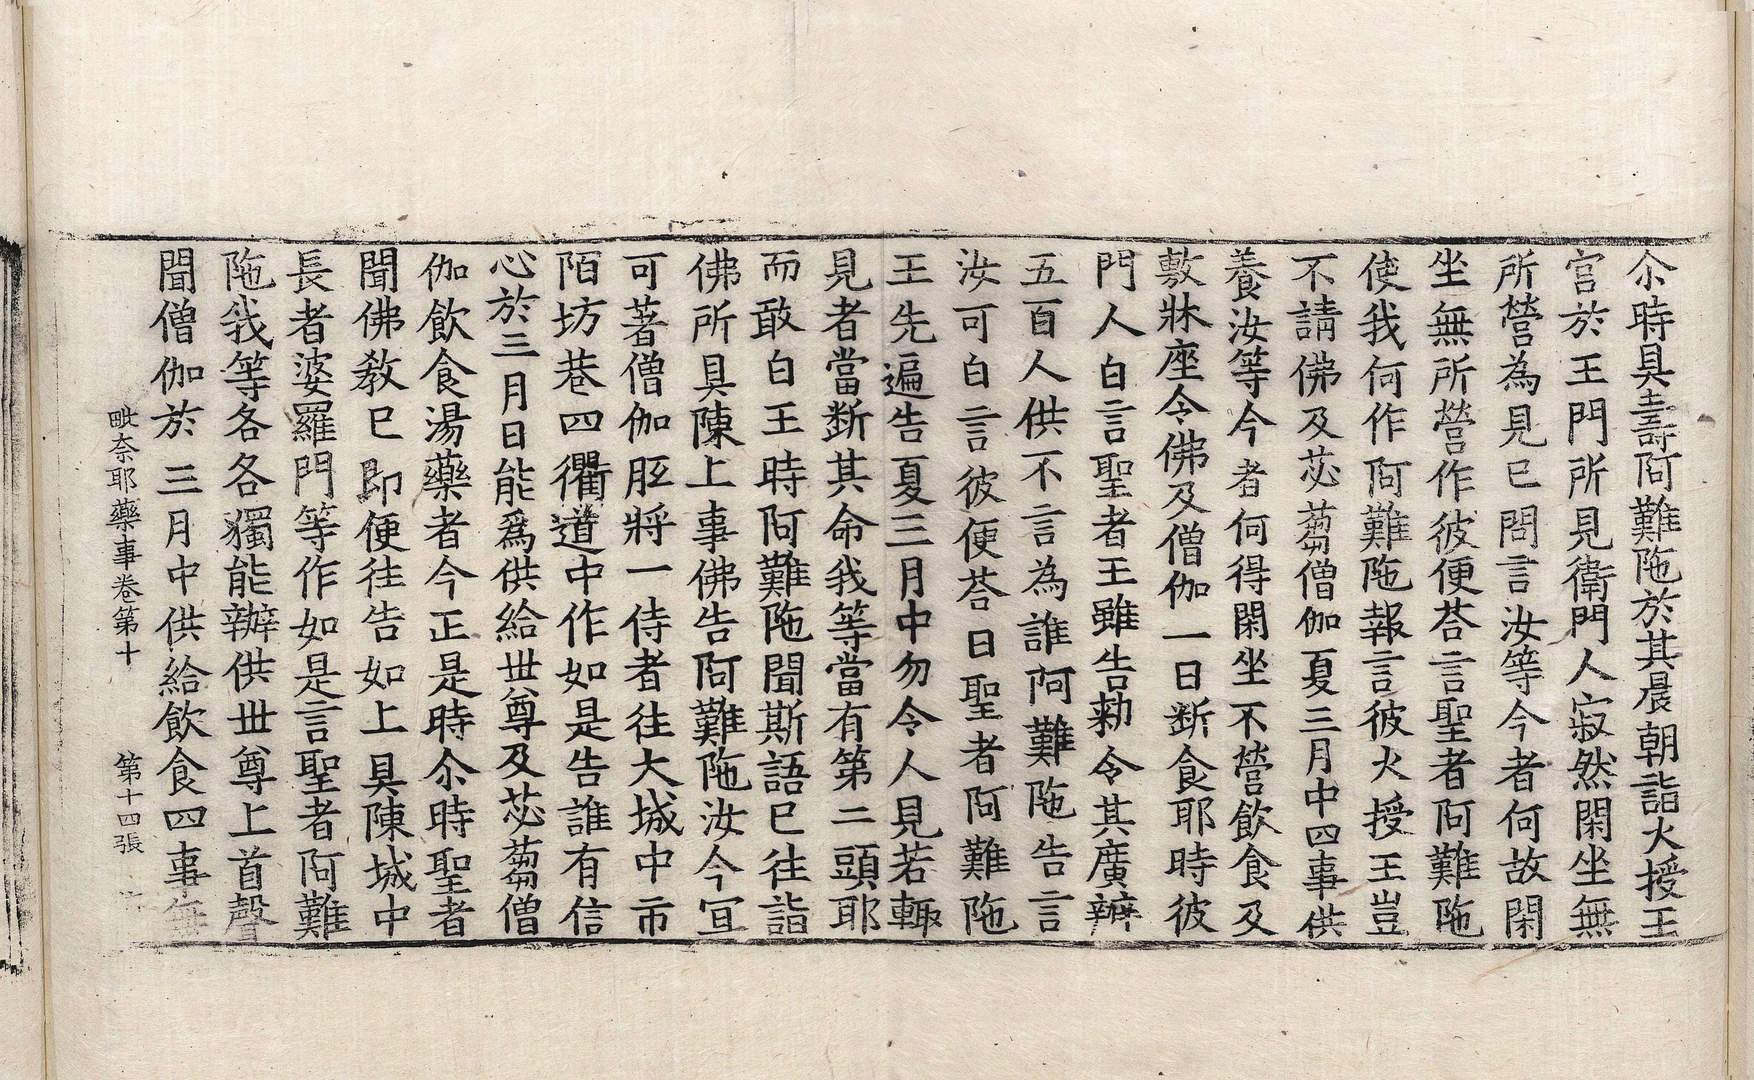 尒時具壽阿難陁於其晨朝詣火授王
宫於王門所見衛門人寂然閑坐無
所營為見已問言汝等今者何故閑
坐無所營作彼便荅言聖者阿難陁
使我何作阿難陁報言彼火授王豈
不請佛及苾蒭僧伽夏三月中四事供
養汝等今者何得閑坐不營飲食及
敷牀座令佛及僧伽一日断食耶時彼
門人白言聖者王雖告勑令其廣辦
五百人供不言為誰阿難陁告言
汝可白言彼便荅曰聖者阿難陁
王先遍告夏三月中勿令人見若輙
見者當断其命我等當有第二頭耶
而敢白王時阿難陁聞斯語已往詣
佛所具陳上事佛告阿難陁汝今宜
可著僧伽胝將一侍者往大城中市
陌坊巷四衢道中作如是告誰有信
心於三月日能爲供給丗尊及苾蒭僧
伽飲食湯藥者今正是時尒時聖者
聞佛教已即便往告如上具陳城中
長者婆羅門等作如是言聖者阿難
陁我等各各獨能辦供丗尊上首聲
聞僧伽於三月中供給飲食四事無
毗奈耶藥事卷第十 第十四張